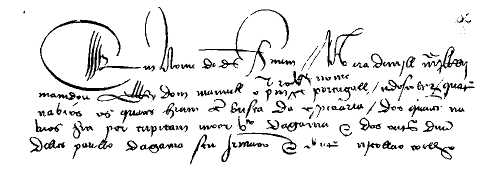 Em nome de ds amem // Na era de mill
mamdou ellRey dom manuell o portugall / a descobrir quatro
nabios os quaes hiam em busca da espiciaria / dos quaes na
bios hia por capitam moor Vco dagama e dos outros duũ
delles paullo dagama seu jrmaao e do outro nicollao coelho